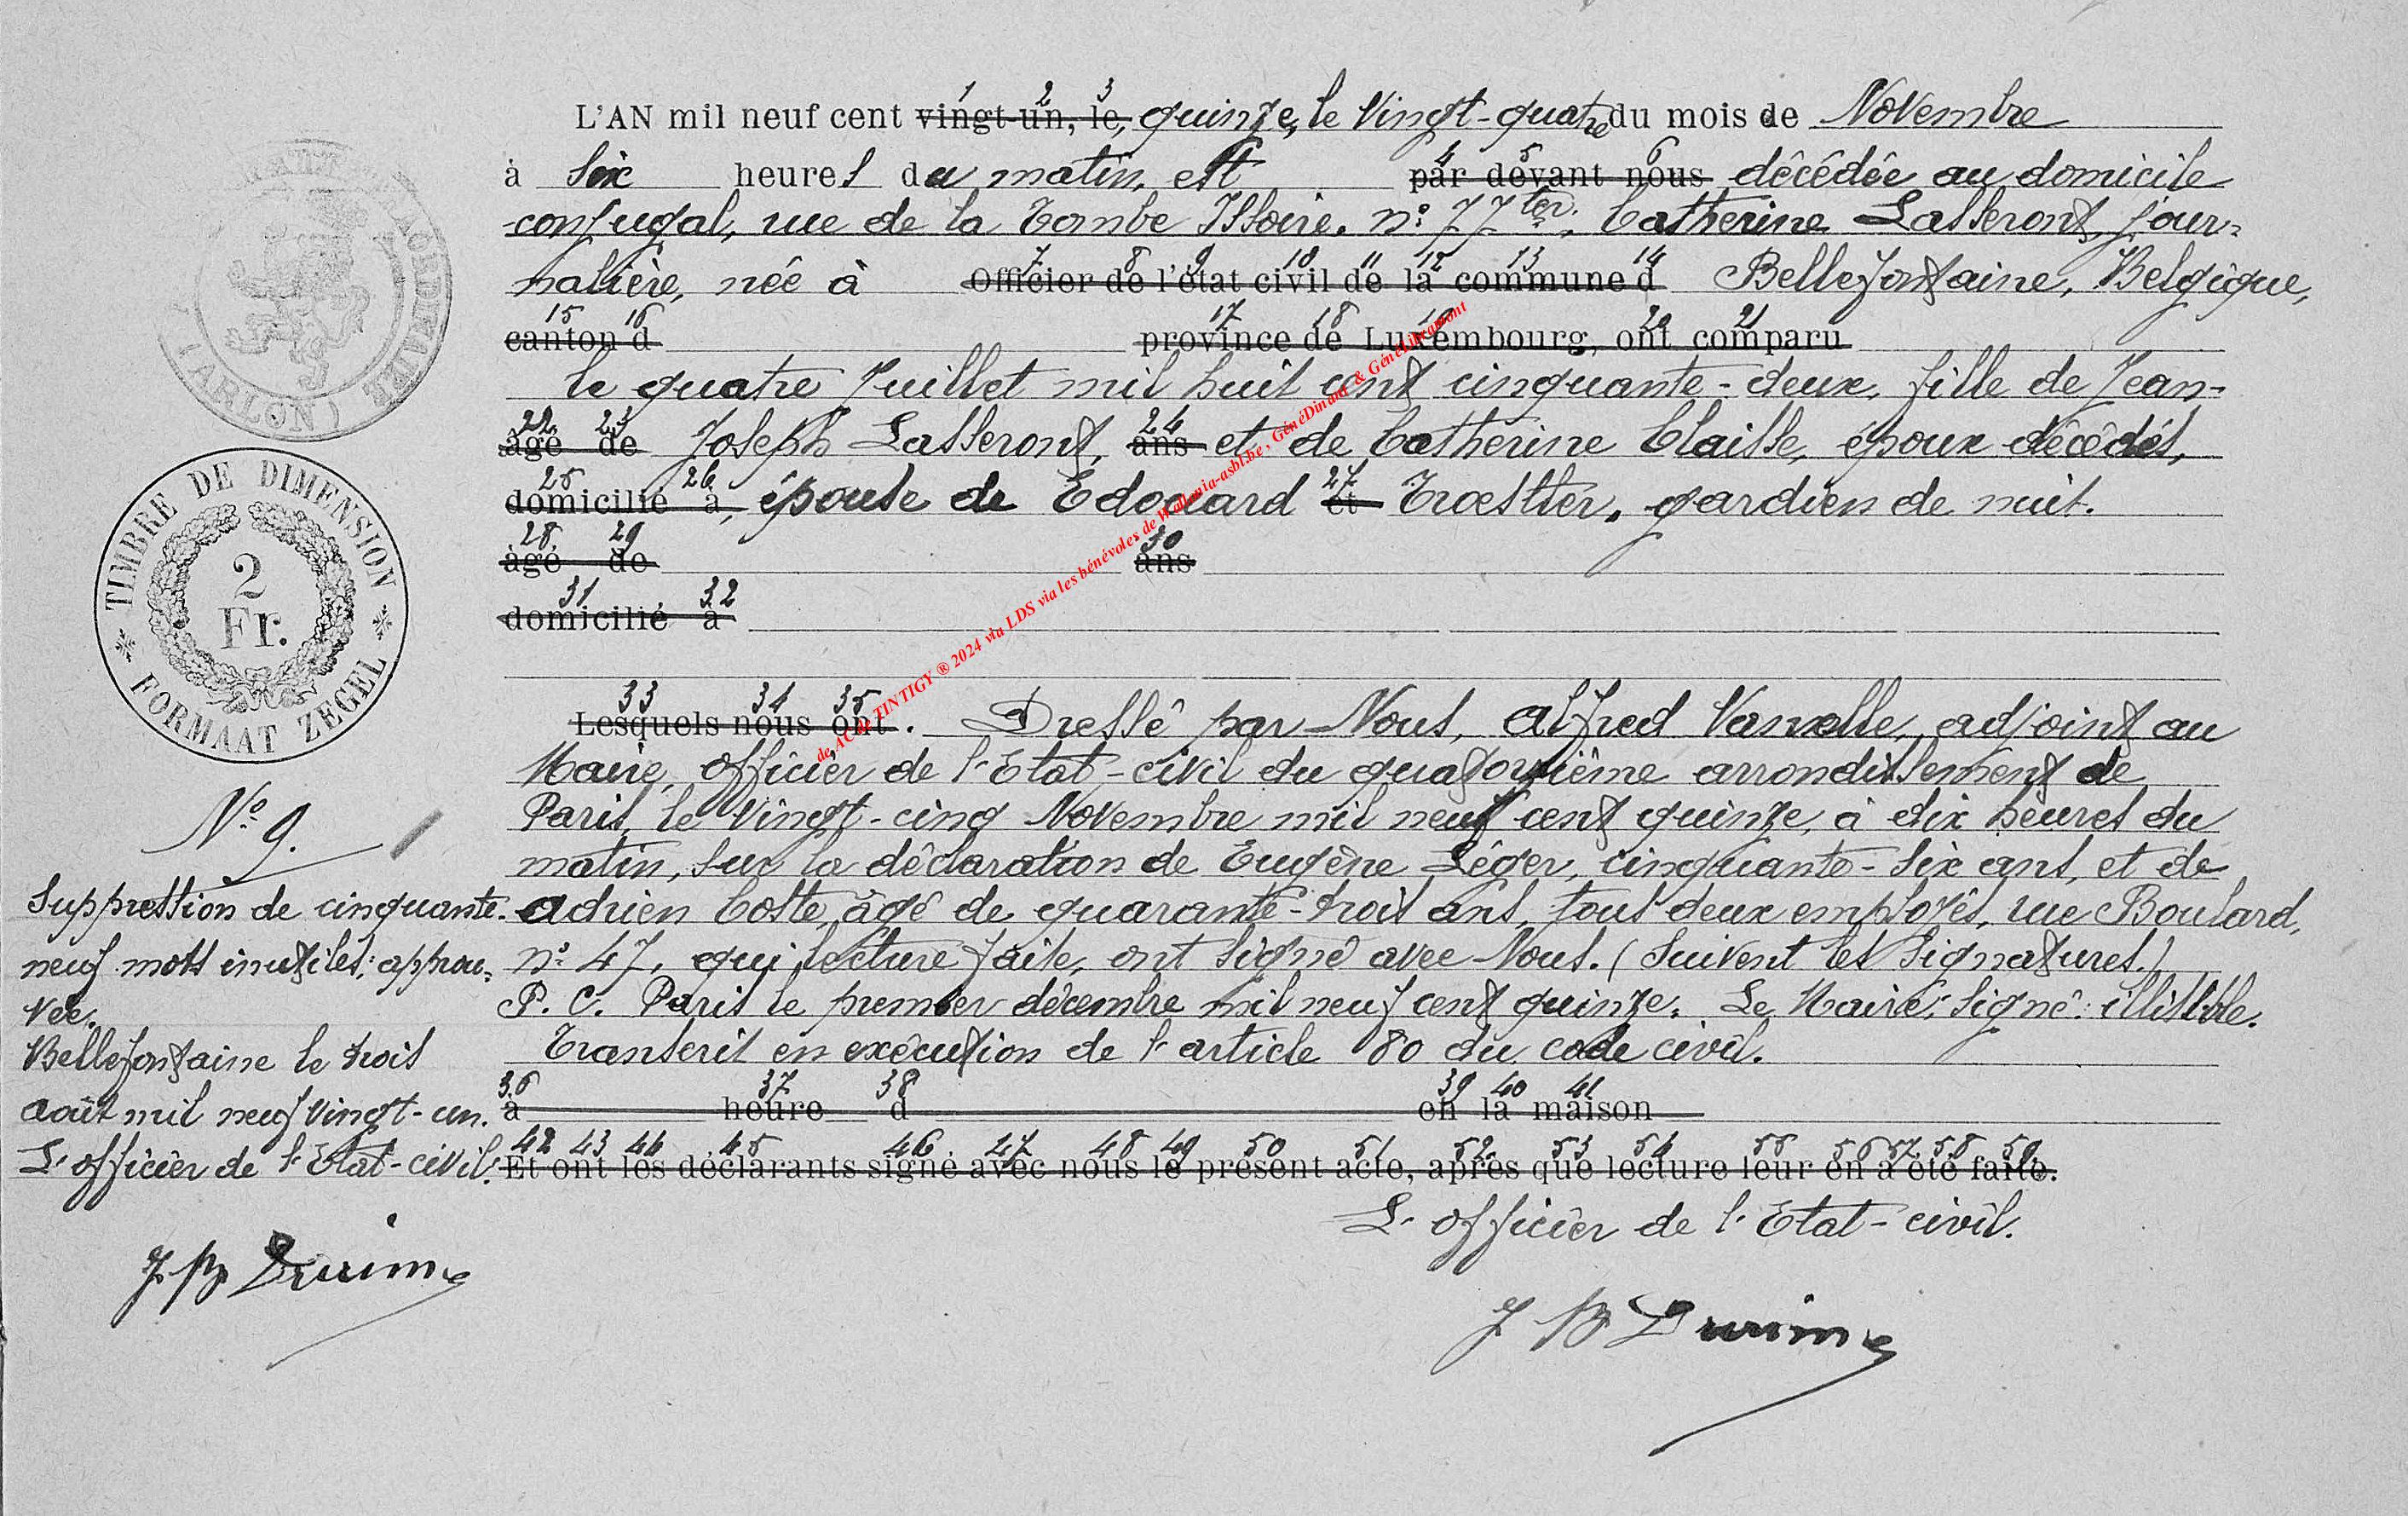 L'AN mil neuf cent vingt-un, le, quinze, le Vingt-quatre du mois de Novembre
à Six heures du matin, est par devant nous décédée au domicile
conjugal, rue de la Tombe Issoire, n° 77 ter, Catherine Lasseront, jour-
nalière, née à Officier de l'état civil de la commune d Bellefontaine, Belgique,
canton d province de Luxembourg, ont comparu
le quatre Juillet mil huit cent cinquante-deux, fille de Jean-
âgé de Joseph Lasseront, ans et de Catherine Claisse, époux décédés,
domicilié à, épouse de Edouard et Troestler, gardien de nuit.
âgé de ans
domicilié à
Lesquels nous ont. Dressé par Nous, Alfred adjoint au
Maire, officier de l'Etat-civil du quatorzième arrondissement de
Paris, le Vingt-cinq Novembre mil neuf cent quinze, à dix heures du
matin, sur la déclaration de Eugène Léger, cinquante-six ans, et de
Adrien Coste, âgé de quarante-trois ans, tous deux employés, rue Boulard,
n° 47, qui lecture faite, ont signé avec Nous. (Suivent les signatures.)
P. C. Paris le premier décembre mil neuf cent quinze. Le Maire, signé: illisible.
Transcrit en exécution de l'article 80 du code civil.
à heure d en la maison
Et ont les déclarants signé avec nous le présent acte, après que lecture leur en a été faite.
L'officier de l'Etat-civil.
J B
TIMBRE DE DIMENSION
2
Fr.
FORMAAT ZEGEL
(ARLON)
N° 9.
Suppression de cinquante-
neuf mots inutiles, approu-
vée.
Bellefontaine le trois
août mil neuf vingt-un.
L'officier de l'Etat-civil.
J B
1 2 3
4 5 6
7 8 9 10 11 12 13 14
15 16 17 18 19 20 21
22 23 24
25 26 27
28 29 30
31 32
33 34 35
36 37 38 39 40 41
42 43 44 45 46 47 48 49 50 51 52 53 54 55 56 57 58 59
TINTIGY ® 2024 via LDS via les bénévoles de Wallonia-asbl.be, GénéDinant & GénéLibramont